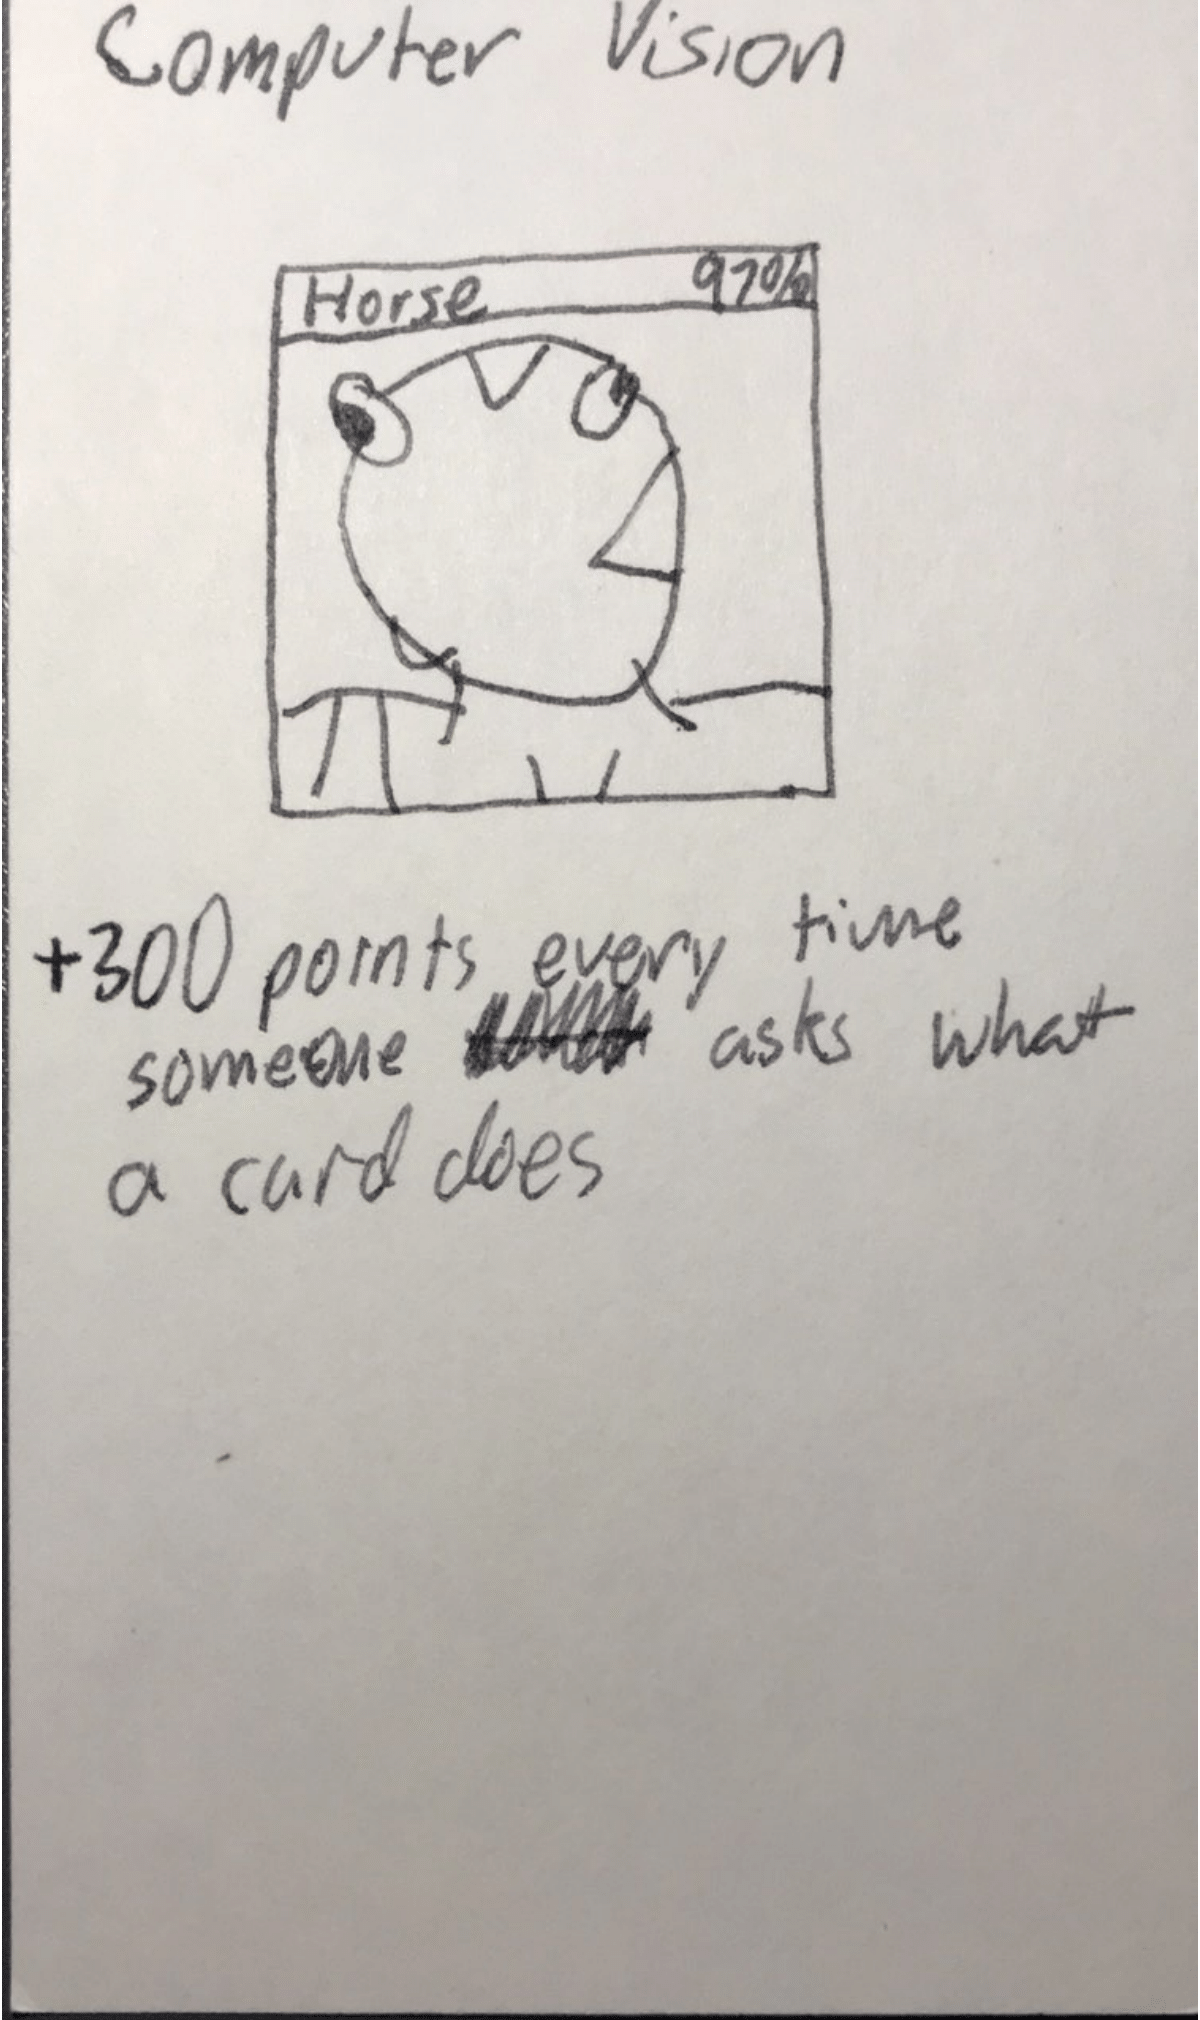 Computer Vision
Horse 97%
+300 points every time
someone asks what
a card does